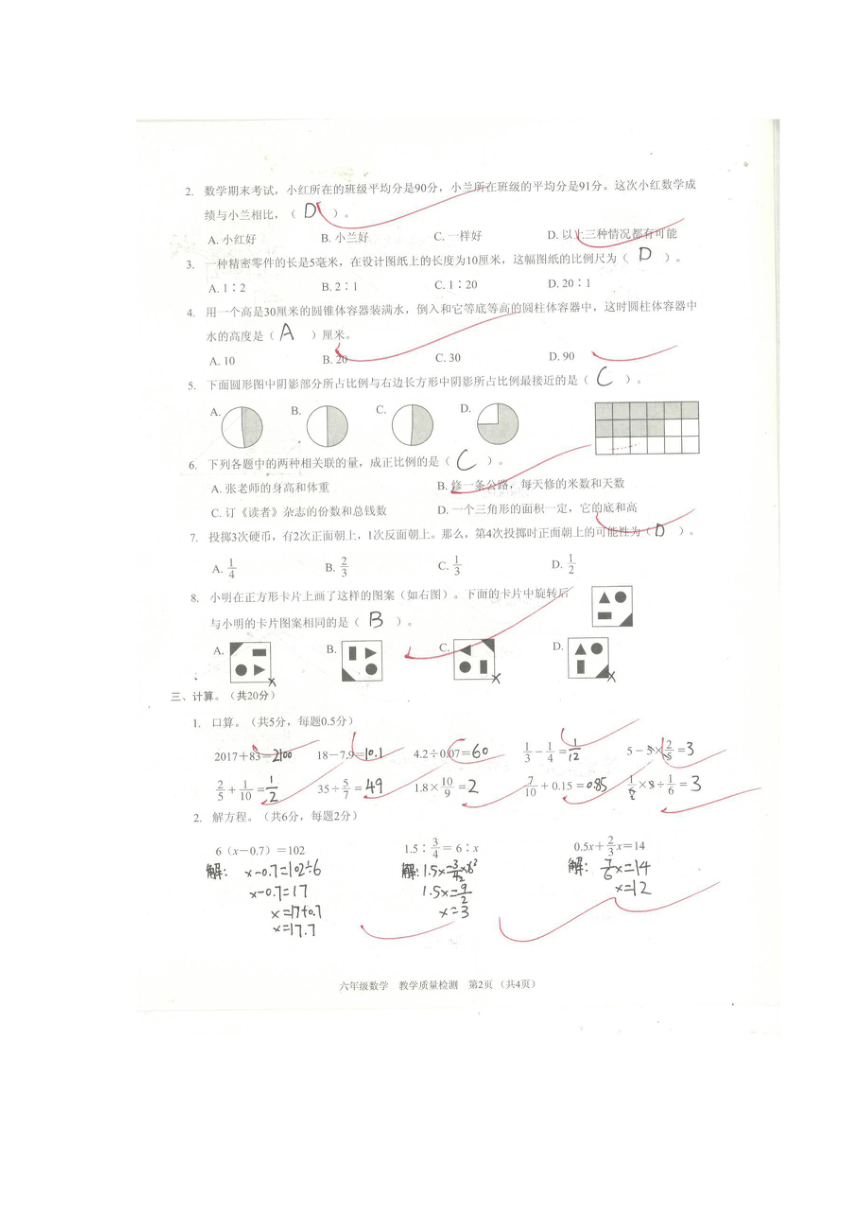 2. 数学期末考试，小红所在的班级平均分是90分，小兰所在班级的平均分是91分。这次小红数学成
绩与小兰相比，（ D ）。
A. 小红好 B. 小兰好 C. 一样好 D. 以上三种情况都有可能
3. 一种精密零件的长是5毫米，在设计图纸上的长度为10厘米，这幅图纸的比例尺为（ D ）。
A. 1：2 B. 2：1 C. 1：20 D. 20：1
4. 用一个高是30厘米的圆锥体容器装满水，倒入和它等底等高的圆柱体容器中，这时圆柱体容器中
水的高度是（ A ）厘米。
A. 10 B. 20 C. 30 D. 90
5. 下面圆形图中阴影部分所占比例与右边长方形中阴影所占比例最接近的是（ C ）。
A. B. C. D.
6. 下列各题中的两种相关联的量，成正比例的是（ C ）。
A. 张老师的身高和体重 B. 修一条公路，每天修的米数和天数
C. 订《读者》杂志的份数和总钱数 D. 一个三角形的面积一定，它的底和高
7. 投掷3次硬币，有2次正面朝上，1次反面朝上。那么，第4次投掷时正面朝上的可能性为（ D ）。
A. 1/4 B. 2/3 C. 1/3 D. 1/2
8. 小明在正方形卡片上画了这样的图案（如右图）。下面的卡片中旋转后
与小明的卡片图案相同的是（ B ）。
A. B. C. D.
三、计算。（共20分）
1. 口算。（共5分，每题0.5分）
2017＋83＝2100 18－7.9＝10.1 4.2÷0.07＝60 1/3－1/4＝1/12 5－5×2/5＝3
2/5＋1/10＝1/2 35÷5/7＝49 1.8×10/9＝2 7/10＋0.15＝0.85 ×8÷1/6＝3
2. 解方程。（共6分，每题2分）
6（x－0.7）＝102 1.5：3/4＝6：x 0.5x＋2/3x＝14
解： x-0.7=102÷6 解：1.5x=3/4×6 解： 7/6x=14
x-0.7=17 1.5x=9/2 x=12
x=17+0.7 x=3
x=17.7
六年级数学 教学质量检测 第2页 （共4页）